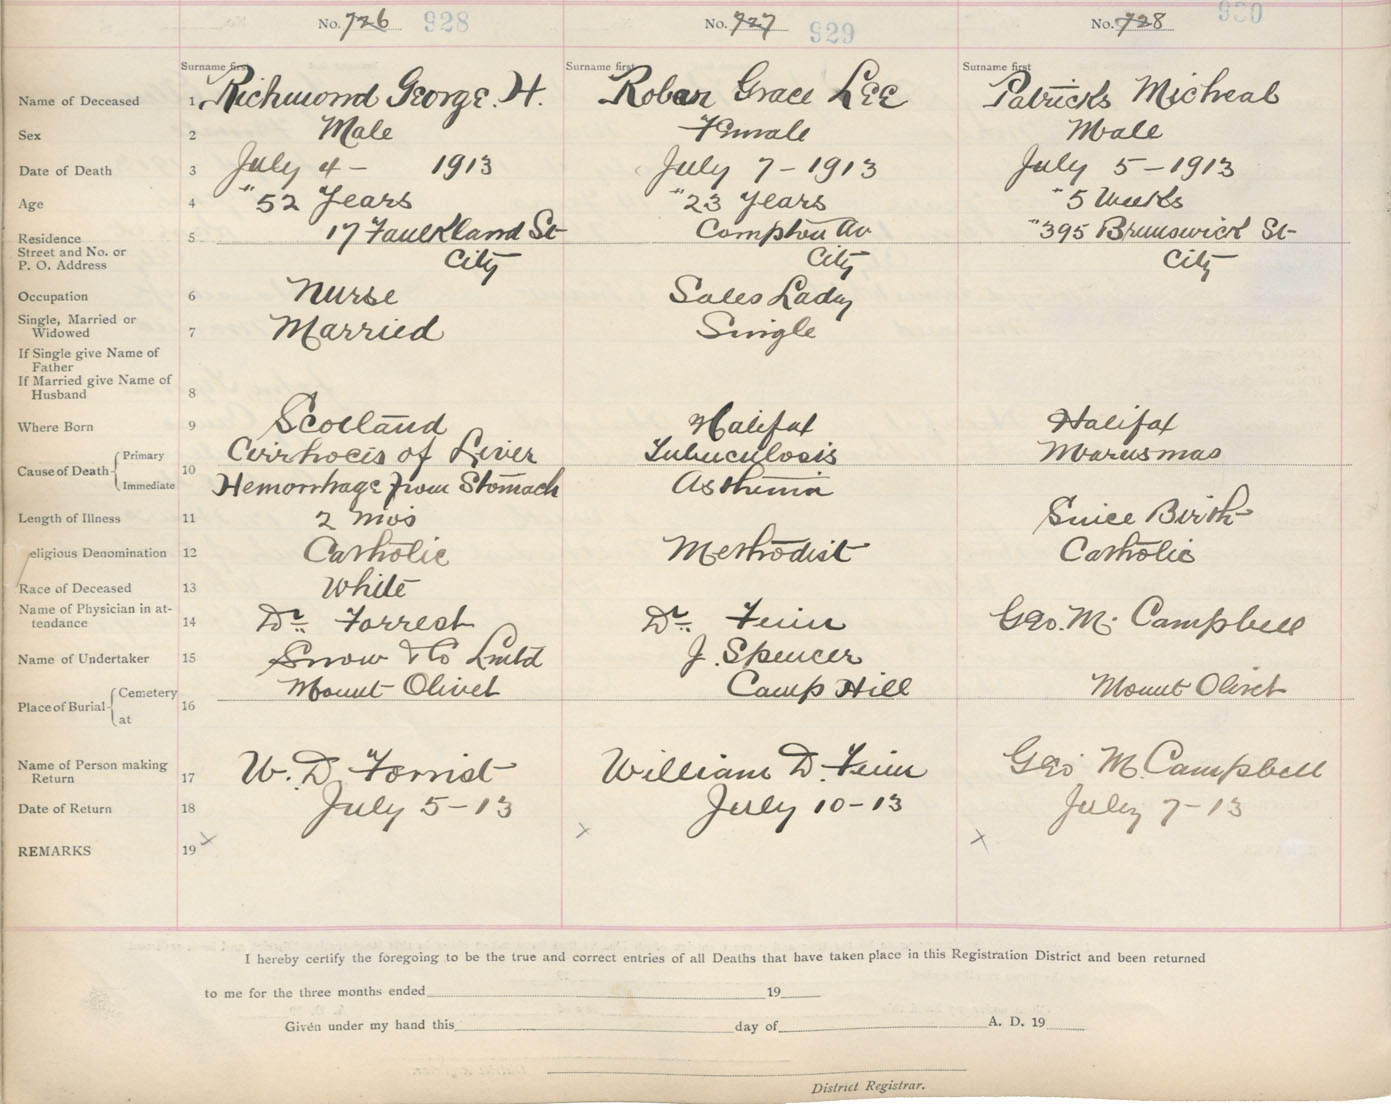 No. 726 928 No. 727 929 No. 728 930
Surname first Surname first Surname first
Name of Deceased 1 Richmond George. H. Roban Grace Lee Patricks Micheal
Sex 2 Male Female Male
Date of Death 3 July 4 - 1913 July 7 - 1913 July 5 - 1913
Age 4 " 52 Years " 23 Years " 5 Weeks
Residence 5 17 Faulkland St Compton Av " 395 Brunswick St
Street and No. or
P. O. Address City City City
Occupation 6 Nurse Sales Lady
Single, Married or
Widowed 7 Married Single
If Single give Name of
Father
If Married give Name of
Husband 8
Where Born 9 Scotland Halifax Halifax
Cause of Death Primary 10 Cirrhocis of Liver Tuberculosis Marusmas
Immediate Hemorrhage from Stomach Asthenia
Length of Illness 11 2 mos Since Birth
eligious Denomination 12 Catholic Methodist Catholic
Race of Deceased 13 White
Name of Physician in at-
tendance 14 Dr. Forrest Dr. Geo. M. Campbell
Name of Undertaker 15 Snow & Co Lmtd J. Spencer
Place of Burial Cemetery Mount Olivet Camp Hill Mount Olivet
at 16
Name of Person making
Return 17 W. D. Forrist William D. Geo M. Campbell
Date of Return 18 July 5 - 13 July 10 - 13 July 7 - 13
REMARKS 19 x x x
I hereby certify the foregoing to be the true and correct entries of all Deaths that have taken place in this Registration District and been returned
to me for the three months ended 19
Given under my hand this day of A. D. 19
District Registrar.